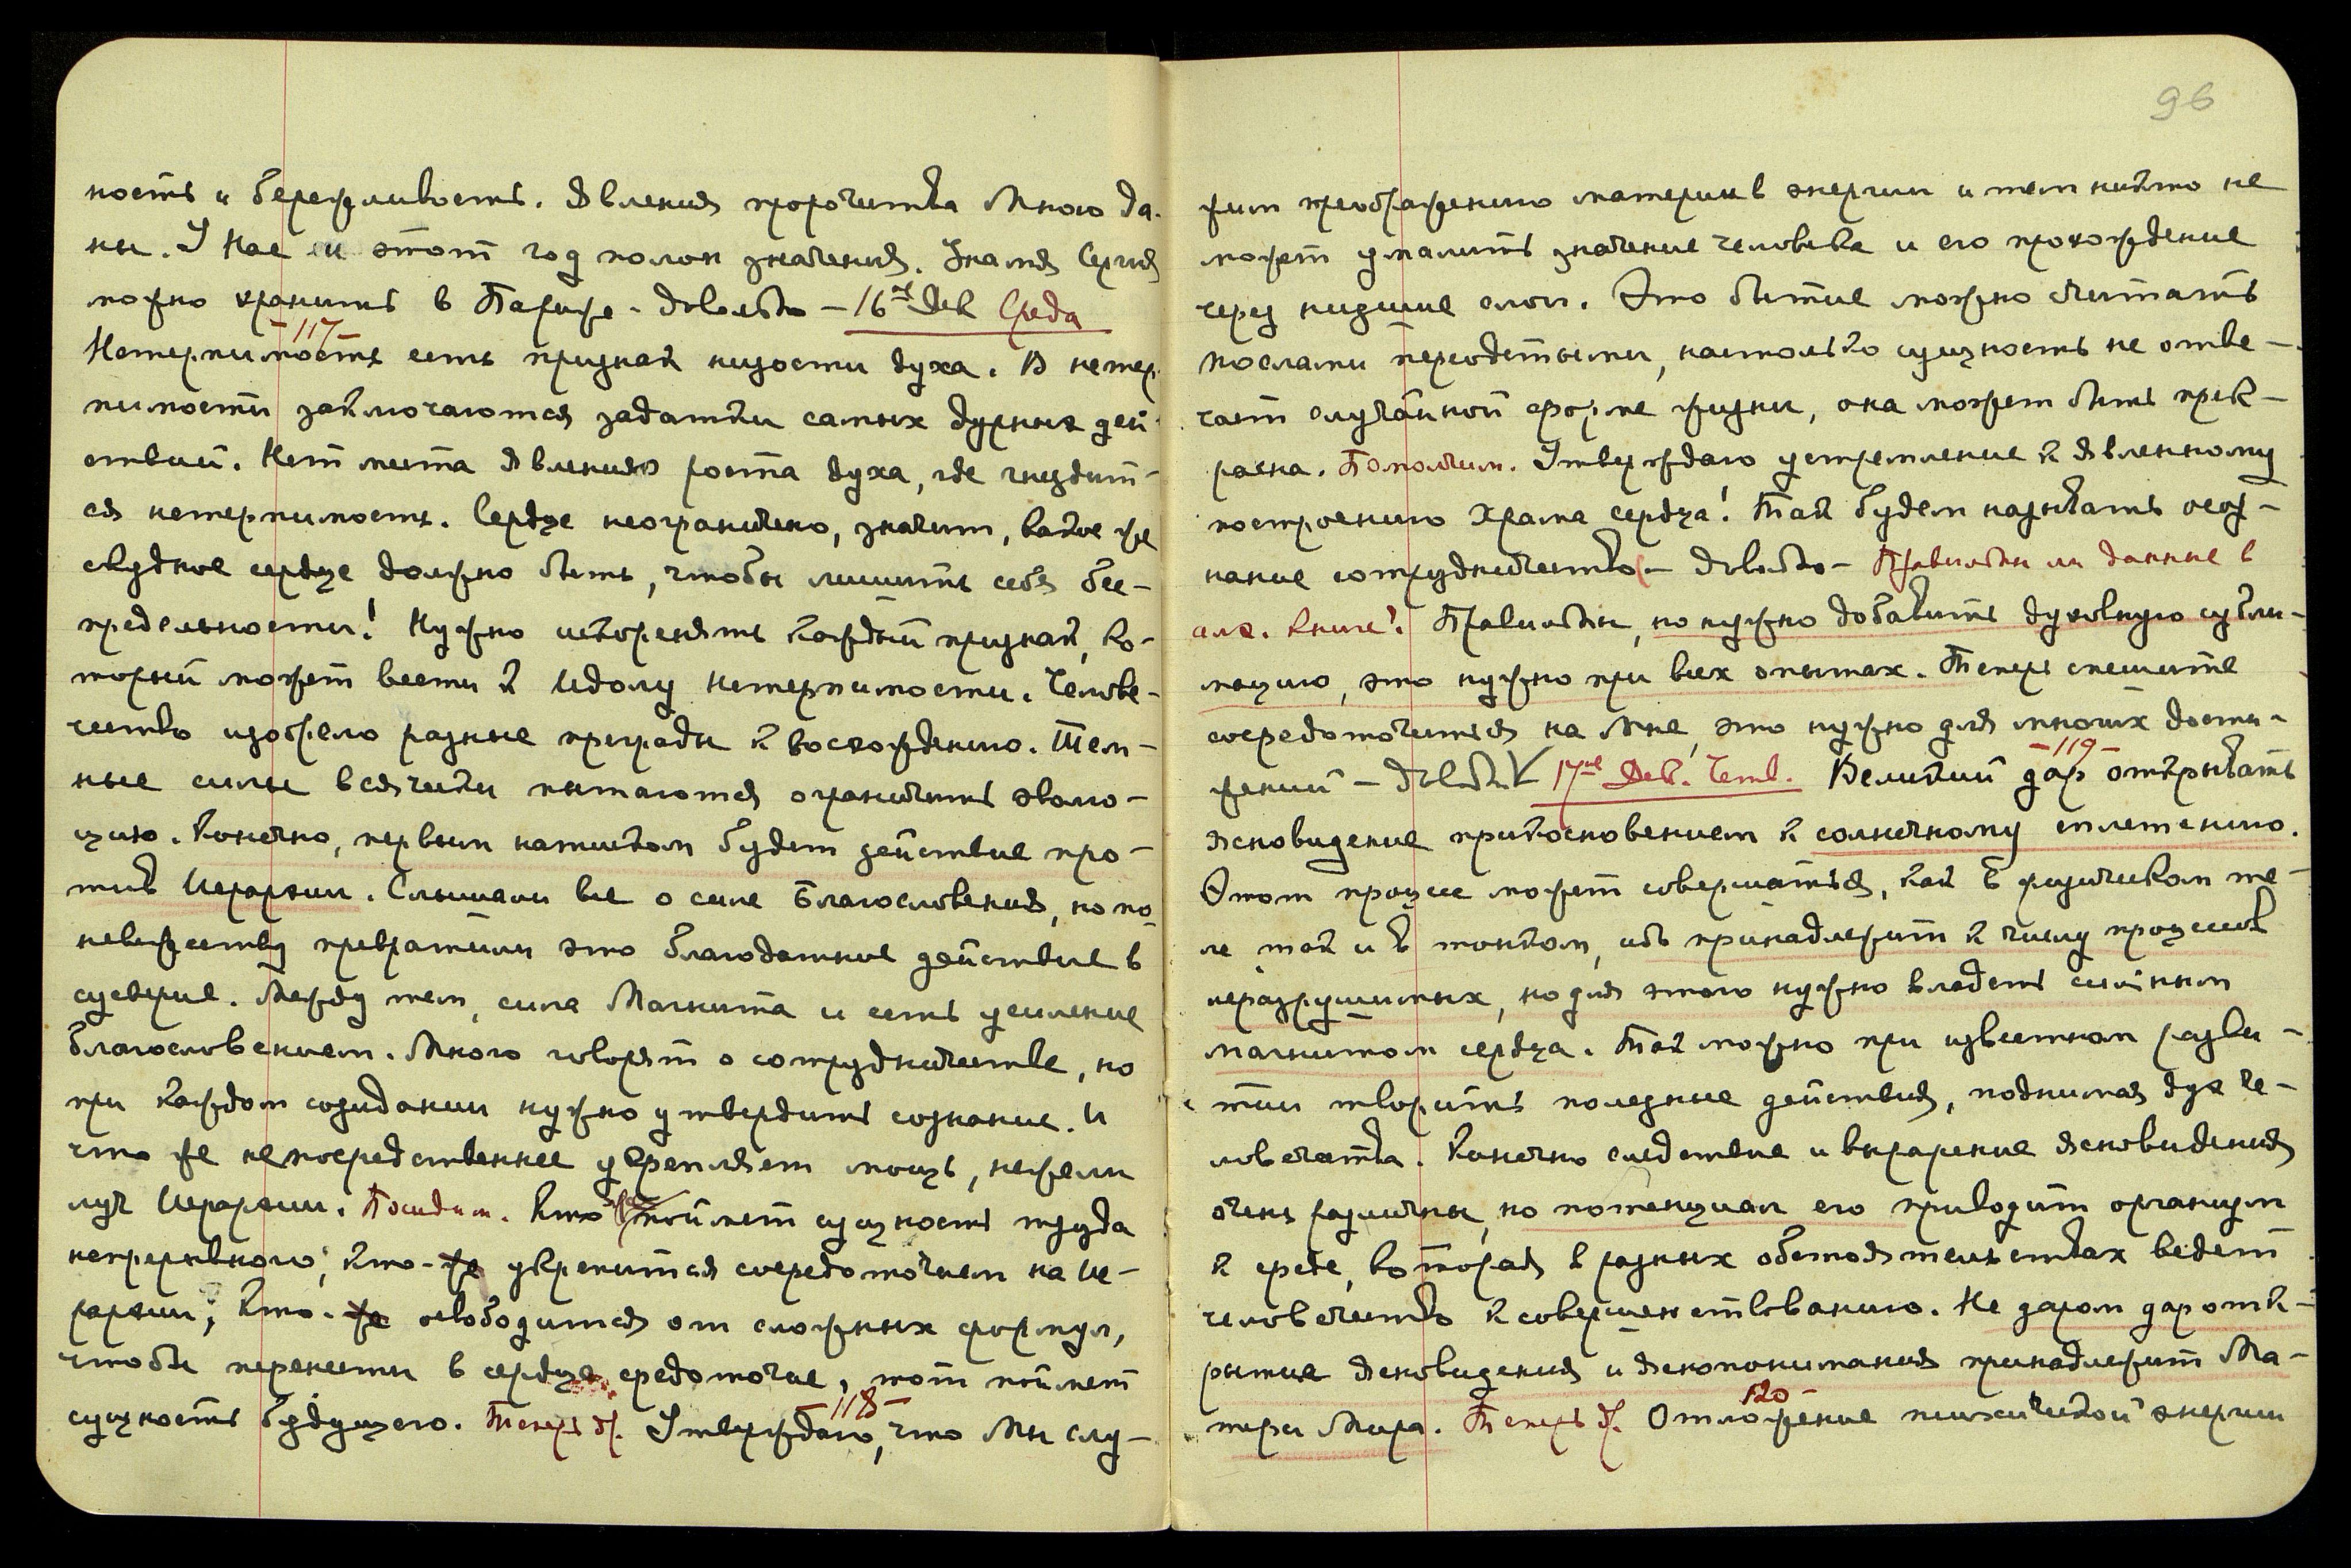 ность и бережливость. Явления пророчества Мною да-
ны. У Нас и этот год полон значения. Знамя Сергия
можно хранить в Париже - Довольно - 16ое Дек Среда
-117-
Нетерпимость есть признак низости духа. В нетер-
пимости заключаются задатки самых дурных дей-
ствий. Нет места явлению роста духа, где гнездит-
ся нетерпимость. Сердце неограничено, значит, какое же
скудное сердце должно быть, чтобы лишить себя бес-
предельности! Нужно искоренять каждый признак, ко-
торый может вести к Идолу нетерпимости. Челове-
чество изобрело разные преграды к восхождению. Тем-
ные силы всячески пытаются ограничить эволю-
цию. Конечно, первым натиском будет действие про-
тив Иерархии. Слышали все о силе Благословения, но по
невежеству превратили это благодатное действие в
суеверие. Между тем, сила Магнита и есть усиление
благословением. Много говорят о сотрудничестве, но
при каждом созидании нужно утвердить сознание. И
что же непосредственнее укрепляет мощь, нежели
луч Иерархии. Посидим. Кто же поймет сущность труда
непрерывного, кто-же укрепится сосредоточием на Ие-
рархии; кто-же освободится от сложных формул,
чтобы перенести в сердце средоточие, тот поймет
-118-
сущность будущего. Теперь др. Утверждаю, что Мы слу-
96
жим преображению материи в энергии и тем никто не
может умалить значение человека и его прохождение
через низшие слои. Это бытие можно считать
послами переодетыми, настолько сущность не отве-
чает случайной форме жизни, она может быть прек-
расна. Помолчим. Утверждаю устремление к явленному
построению Храма сердца! Так будем называть осоз-
нание сотрудничества - Довольно - Правильны ли данные в
алх. книге? Правильны, но нужно добавить духовную субли-
мацию, это нужно при всех опытах. Теперь спешите
сосредоточиться на Мне, это нужно для многих дости-
-119-
жений - Довольно V 17ое Дек. Четв. Великий дар открывать
ясновидение прикосновением к солнечному сплетению.
Этот процесс может совершаться, как в физическом те-
ле так и в тонком, ибо принадлежит к числу процессов
неразрушимых, но для этого нужно владеть сильным
магнитом сердца. Так можно при известном разви-
тии творить полезные действия, поднимая дух че-
ловечества. Конечно следствие и выражение ясновидения
очень различны, но потенциал его приводит организм
к среде, которая в разных обстоятельствах ведет
человечество к совершенствованию. Не даром дар отк-
рытия ясновидения и яснопонимания принадлежит Ма-
120-
тери Мира. Теперь др. Отложение психической энергии